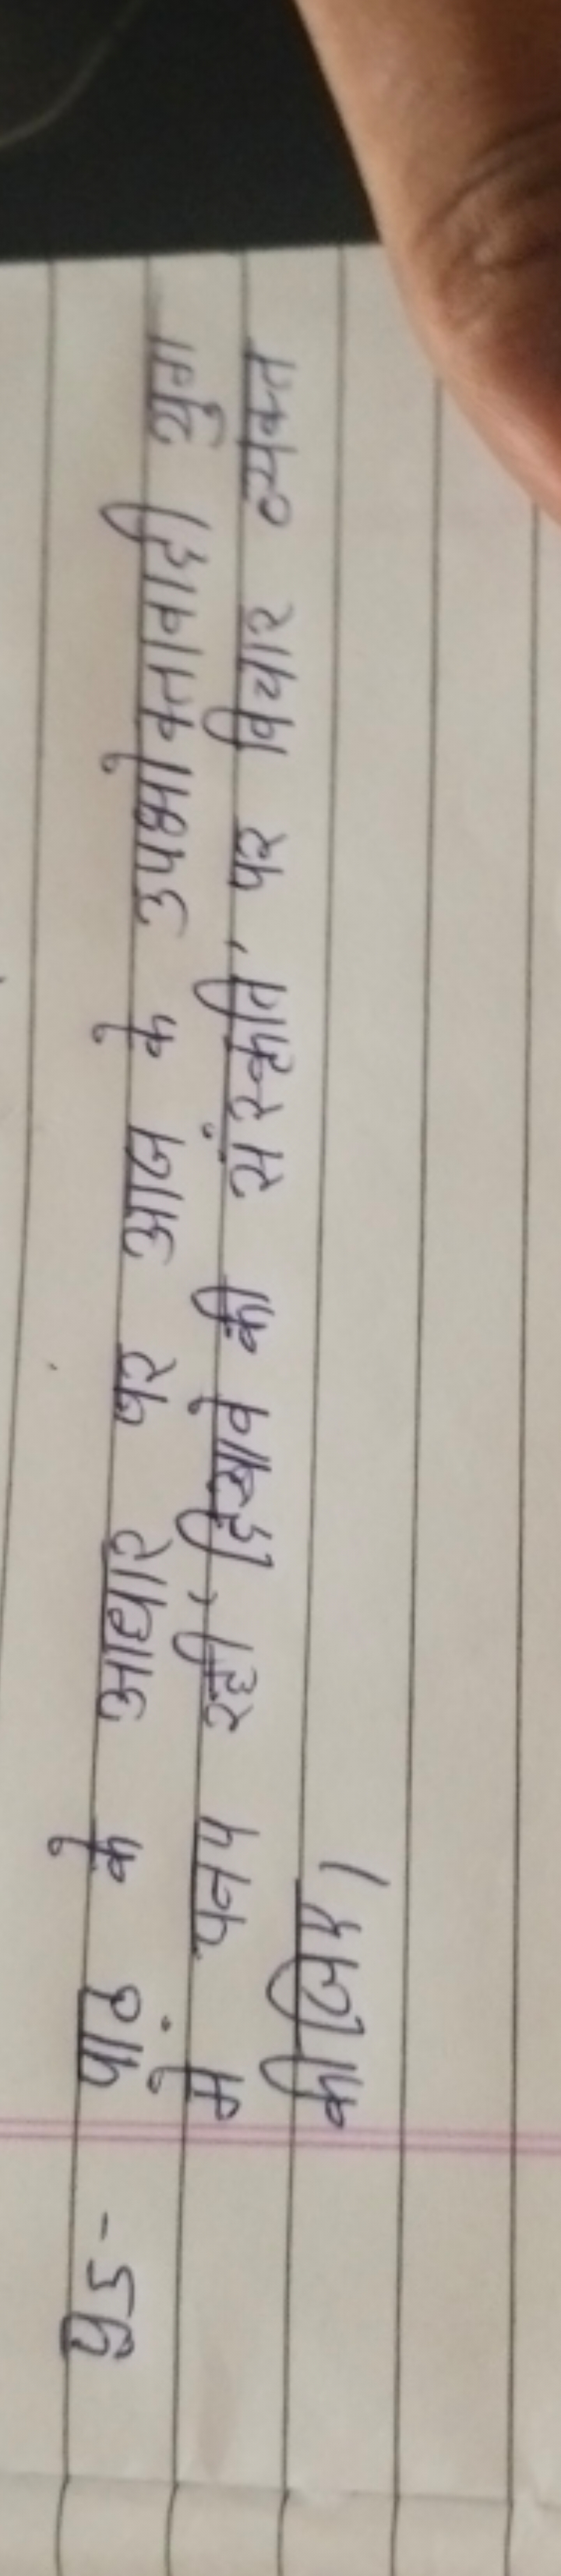 प्र5- पाठ के आधार पर आज के उपभोक्तावादी युग
में पनप रही 'दिखावे की संस्कृति' पर विचार व्यक्त
कीजिए।